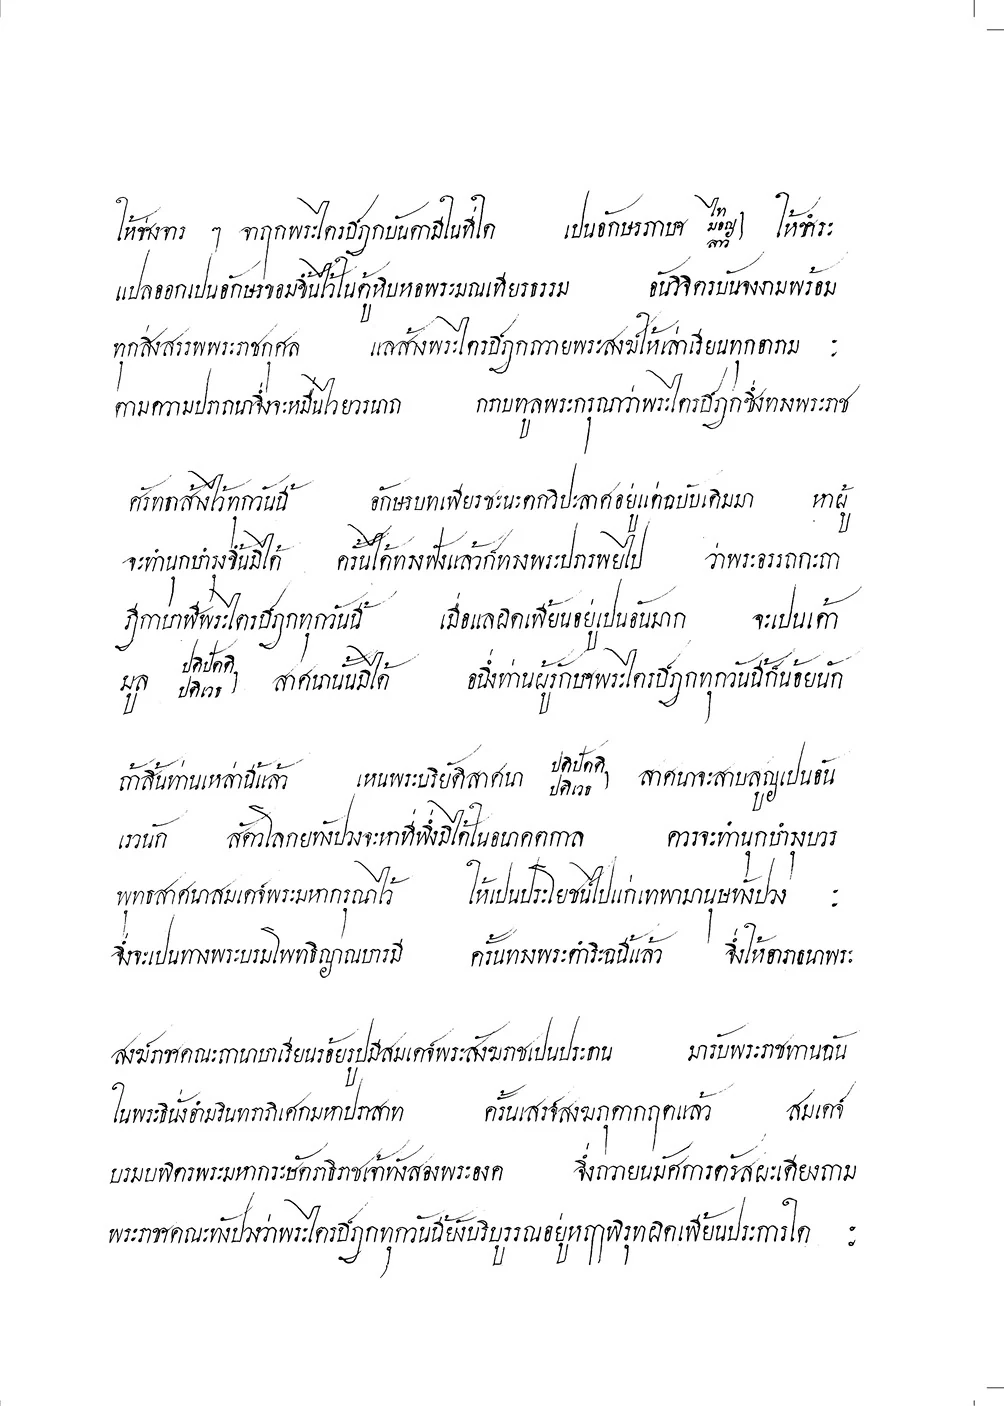 ให้ช่างทาร ๆ จาฤกพระไตรปิฎกบันดามีในที่ใด เปนอักษรภาษ ไท มอญ ลาว ให้ชำระ
แปลออกเปนอักษรขอมขึ้นไว้ในตู้หิบหอพระมณเทียรธรรม อันวิจิตรบันจงงามพร้อม
ทุกสิ่งสรรพพระราชกุศล แลส้างพระไตรปิฎกถวายพระสงฆ์ให้เล่าเรียนทุกอาราม :
ตามความปราถนาจึ่งจะหมื่นไวยวรนาถ กราบทูลพระกรุณาว่าพระไตรปิฎกซึ่งทรงพระราช
ศรัทธาส้างไว้ทุกวันนี้ อักษรบทเพียรชะนะตกวิปะลาศอยู่แต่ฉบับเดิมมา หาผู้
จะทำนุกบำรุงขึ้นมิได้ ครั้นได้ทรงฟังแล้วก็ทรงพระปราพภไป ว่าพระอรรถกะถา
ฎีกาบาฬีพระไตรปิฎกทุกวันนี้ เมื่อแลผิดเพี้ยนอยู่เปนอันมาก จะเปนเค้า
มูล ปติปัตติ ปติเวธ สาศนานั้นมิได้ อนึ่งท่านผู้รักษาพระไตรปิฎกทุกวันนี้ก็น้อยนัก
ถ้าสิ้นท่านเหล่านี้แล้ว เหนพระบริยัติสาศนา ปติปัตติ ปติเวธ สาศนาจะสาบสูญเปนอัน
เรวนัก สัตวโลกยทังปวงจะหาที่พึ่งมิได้ในอนาคตกาล ควรจะทำนุกบำรุงบวร
พุทธสาศนาสมเดจ์พระมหากรุณาไว้ ให้เปนประโยชน์ไปแก่เทพามานุษทังปวง :
จึ่งจะเปนทางพระบรมโพทธิญาณบารมี ครั้นทรงพระดำริะฉนี้แล้ว จึ่งให้อาราธนาพระ
สงฆ์ราชคณะถานาบาเรียนร้อยรูปมีสมเดจ์พระสังฆราชเปนประธาน มารับพระราชทานฉัน
ในพระธินั่งอำมรินทราภิเศกมหาปราสาท ครั้นเสรจ์สงฆภุตากฤตแล้ว สมเดจ์
บรมบพิตรพระมหากระษัตราธิราชเจ้าทังสองพระองค จึ่งถวายนมัศการตรัสผะเดียงถาม
พระราชาคณะทังปวงว่าพระไตรปิฎกทุกวันนี้ยังบริบูรรณอยู่หฤๅพิรุทผิดเพี้ยนประการใด :